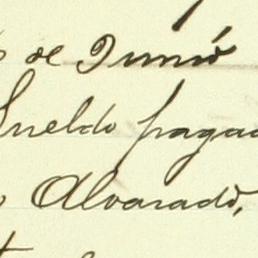 de Junio
Sueldo pagad
Alvarado,